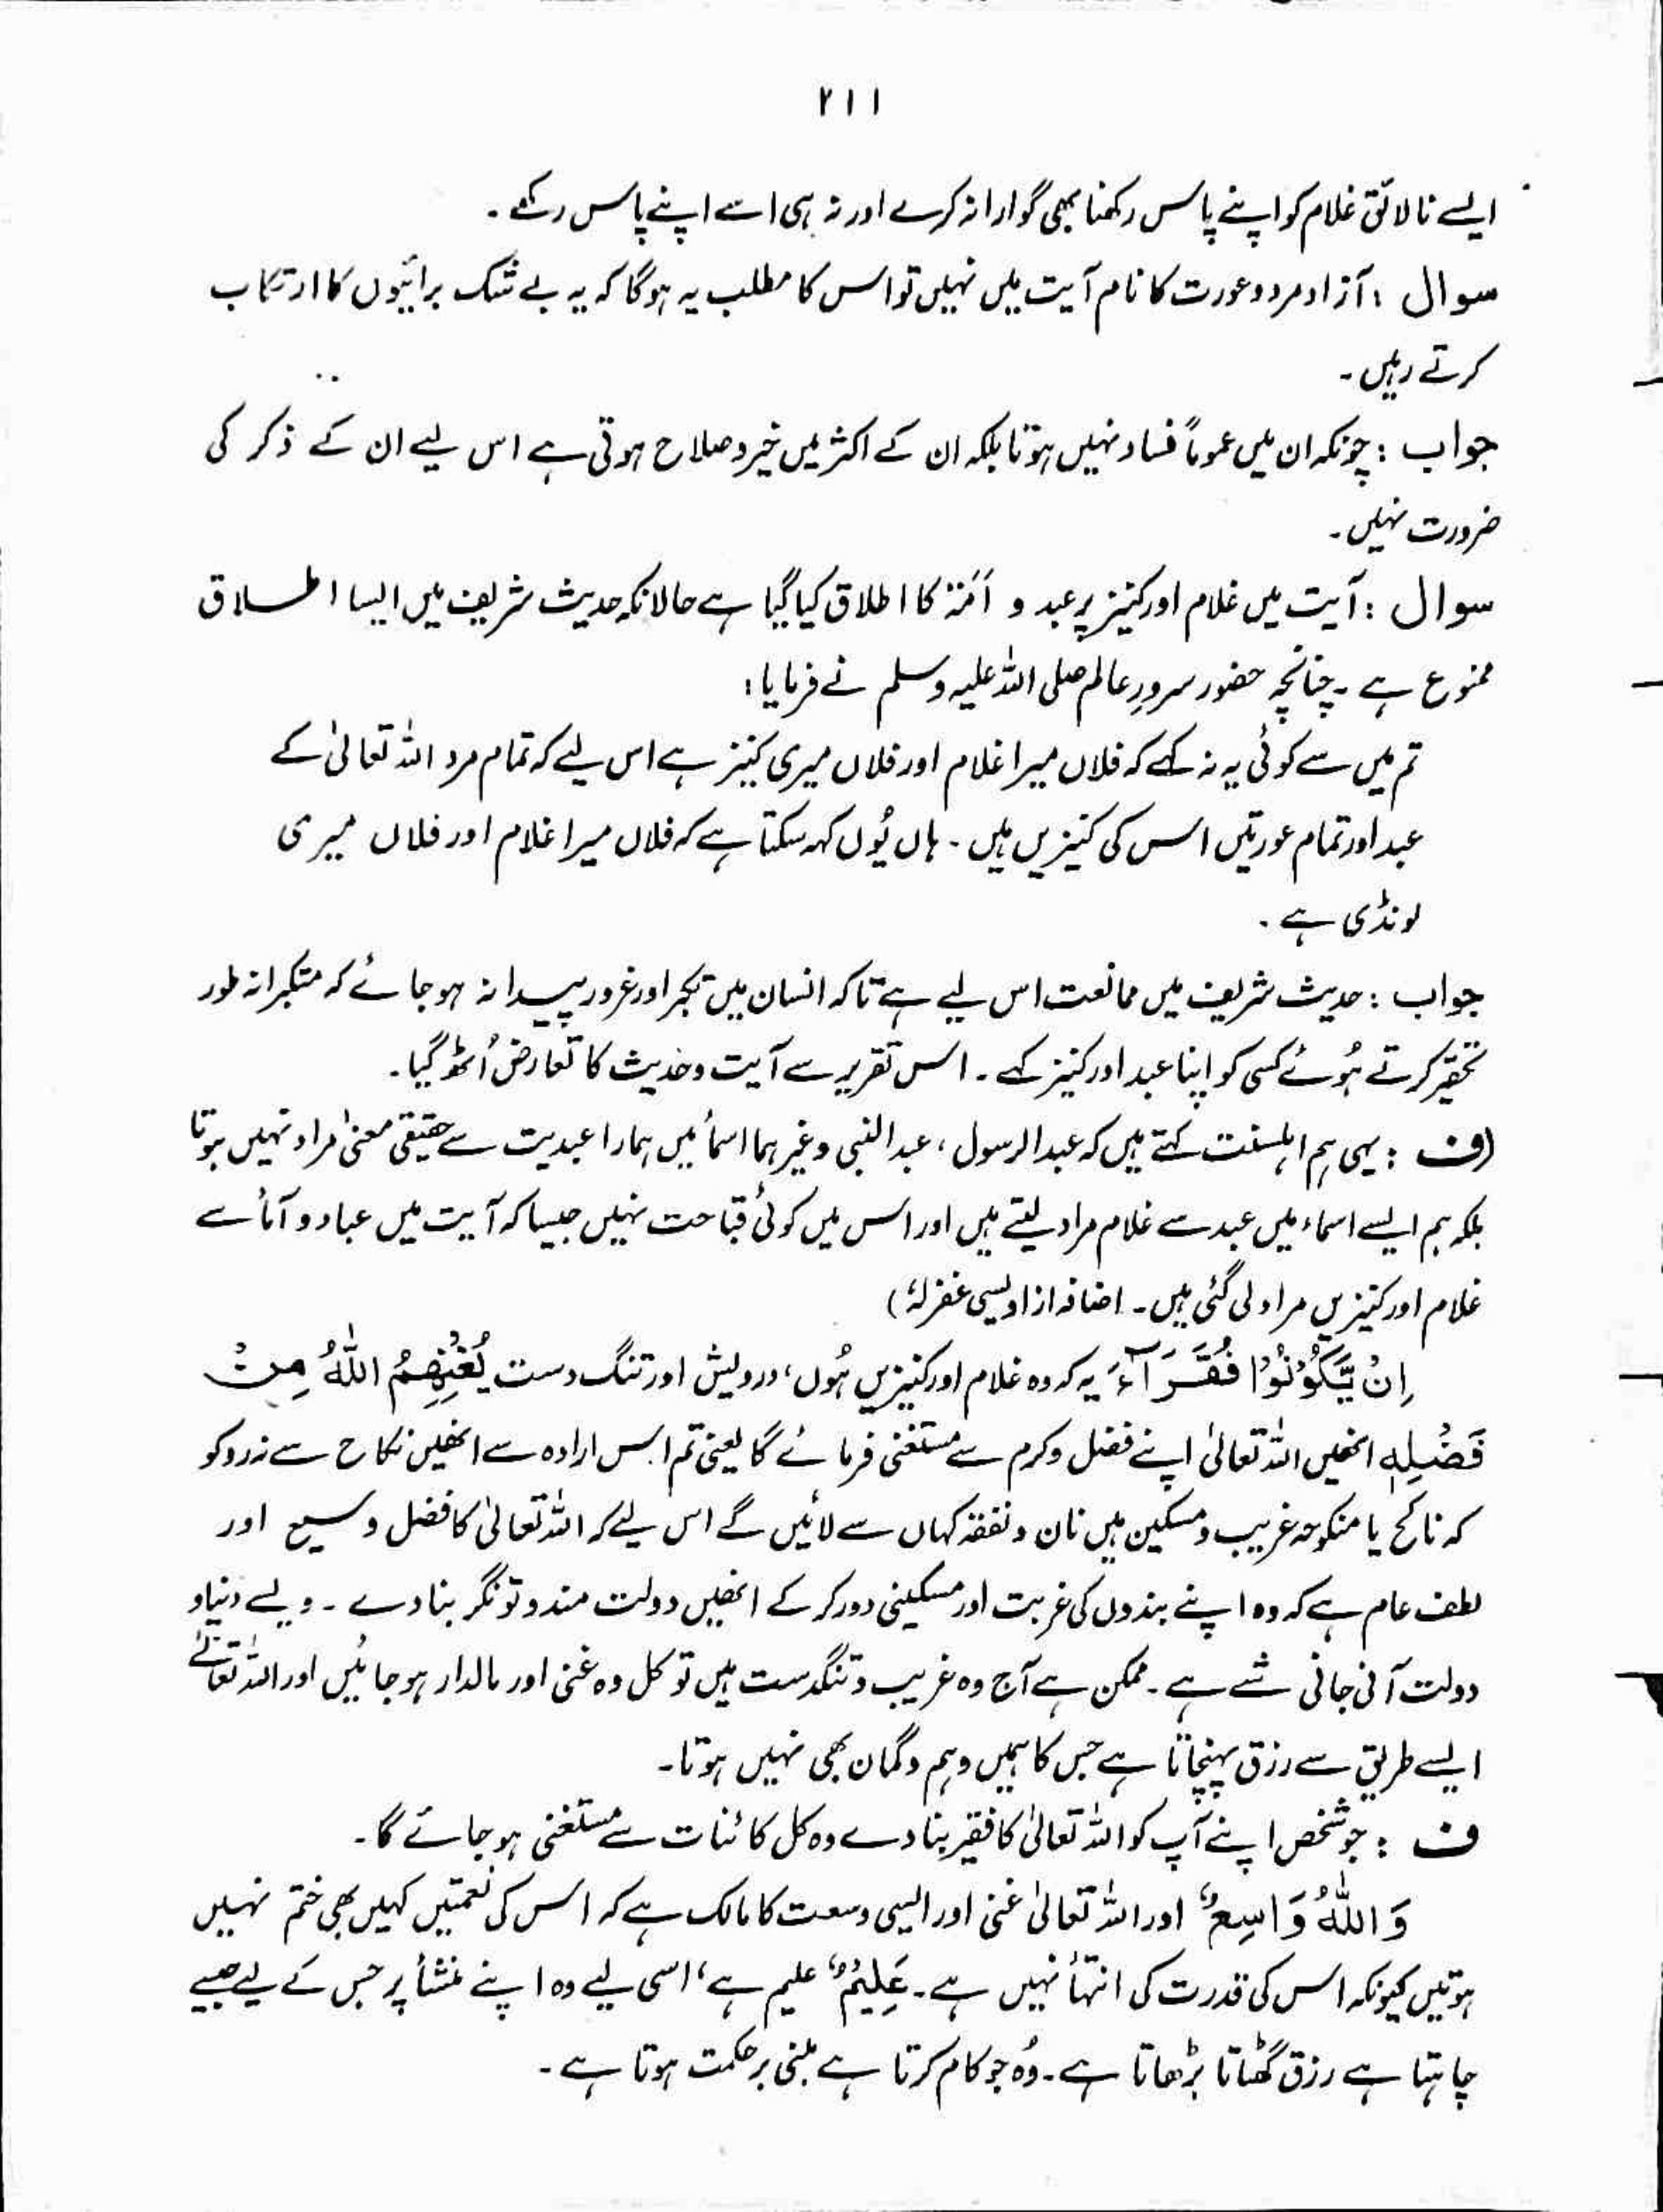 ۲۱۱
ایسے نالائق غلام کو اپنے پاس رکھنا بھی گوارا نہ کرے اور نہ ہی اسے اپنے پاس رکھے ۔
سوال : آزاد مرد و عورت کا نام آیت میں نہیں تو اس کا مطلب یہ ہوگا کہ یہ بے شک برائیوں کا ارتکاب
کرتے رہیں ۔
جواب : چونکہ ان میں عموماً فساد نہیں ہوتا بلکہ ان کے اکثر میں خیر و صلاح ہوتی ہے اس لیے ان کے ذکر کی
ضرورت نہیں ۔
سوال : آیت میں غلام اور کنیز پر عبد و اَمَۃ کا اطلاق کیا گیا ہے حالانکہ حدیث شریف میں ایسا اطلاق
ممنوع ہے ۔ چنانچہ حضور سرورِ عالم صلی اللہ علیہ وسلم نے فرمایا :
تم میں سے کوئی یہ نہ کہے کہ فلاں میرا غلام اور فلاں میری کنیز ہے اس لیے کہ تمام مرد اللہ تعالیٰ کے
عبد اور تمام عورتیں اس کی کنیزیں ہیں ۔ ہاں یُوں کہہ سکتا ہے کہ فلاں میرا غلام اور فلاں میری
لونڈی ہے ۔
جواب : حدیث شریف میں ممانعت اس لیے ہے تاکہ انسان میں تکبر اور غرور پیدا نہ ہو جائے کہ متکبرانہ طور
تحقیر کرتے ہُوئے کسی کو اپنا عبد اور کنیز کہے ۔ اس تقریر سے آیت و حدیث کا تعارض اُٹھ گیا ۔
(ف : یہی ہم اہلسنت کہتے ہیں کہ عبدالرسول ، عبدالنبی وغیرہما اسمأ میں ہمارا عبدیت سے حقیقی معنیٰ مراد نہیں ہوتا
بلکہ ہم ایسے اسماء میں عبد سے غلام مراد لیتے ہیں اور اس میں کوئی قباحت نہیں جیسا کہ آیت میں عباد و آمأ سے
غلام اور کنیزیں مراد لی گئی ہیں ۔ اضافہ از اویسی غفرلہٗ)
اِنْ یَّکُوْنُوْا فُقَرَآءَ یہ کہ وہ غلام اور کنیزیں ہُوں ، درویش اور تنگ دست یُغْنِھِمُ اللّٰہُ مِنْ
فَضْلِہٖ انھیں اللہ تعالیٰ اپنے فضل و کرم سے مستغنی فرمائے گا یعنی تم اس ارادہ سے انھیں نکاح سے نہ روکو
کہ ناکح یا منکوحہ غریب و مسکین ہیں نان و نفقہ کہاں سے لائیں گے اس لیے کہ اللہ تعالیٰ کا فضل وسیع اور
لطف عام ہے کہ وہ اپنے بندوں کی غربت اور مسکینی دور کر کے انھیں دولت مند و تونگر بنا دے ۔ ویسے دنیا و
دولت آنی جانی شے ہے ۔ ممکن ہے آج وہ غریب و تنگدست ہیں تو کل وہ غنی اور مالدار ہو جائیں اور اللہ تعالیٰ
ایسے طریق سے رزق پہنچاتا ہے جس کا ہمیں وہم و گمان بھی نہیں ہوتا ۔
ف : جو شخص اپنے آپ کو اللہ تعالیٰ کا فقیر بنا دے وہ کل کائنات سے مستغنی ہو جائے گا ۔
وَاللّٰہُ وَاسِعٌ اور اللہ تعالیٰ غنی اور ایسی وسعت کا مالک ہے کہ اس کی نعمتیں کہیں بھی ختم نہیں
ہوتیں کیونکہ اس کی قدرت کی انتہأ نہیں ہے ۔ عَلِیْمٌ علیم ہے ، اسی لیے وہ اپنے منشأ پر جس کے لیے جیسے
چاہتا ہے رزق گھٹاتا بڑھاتا ہے ۔ وُہ جو کام کرتا ہے مبنی بر حکمت ہوتا ہے ۔